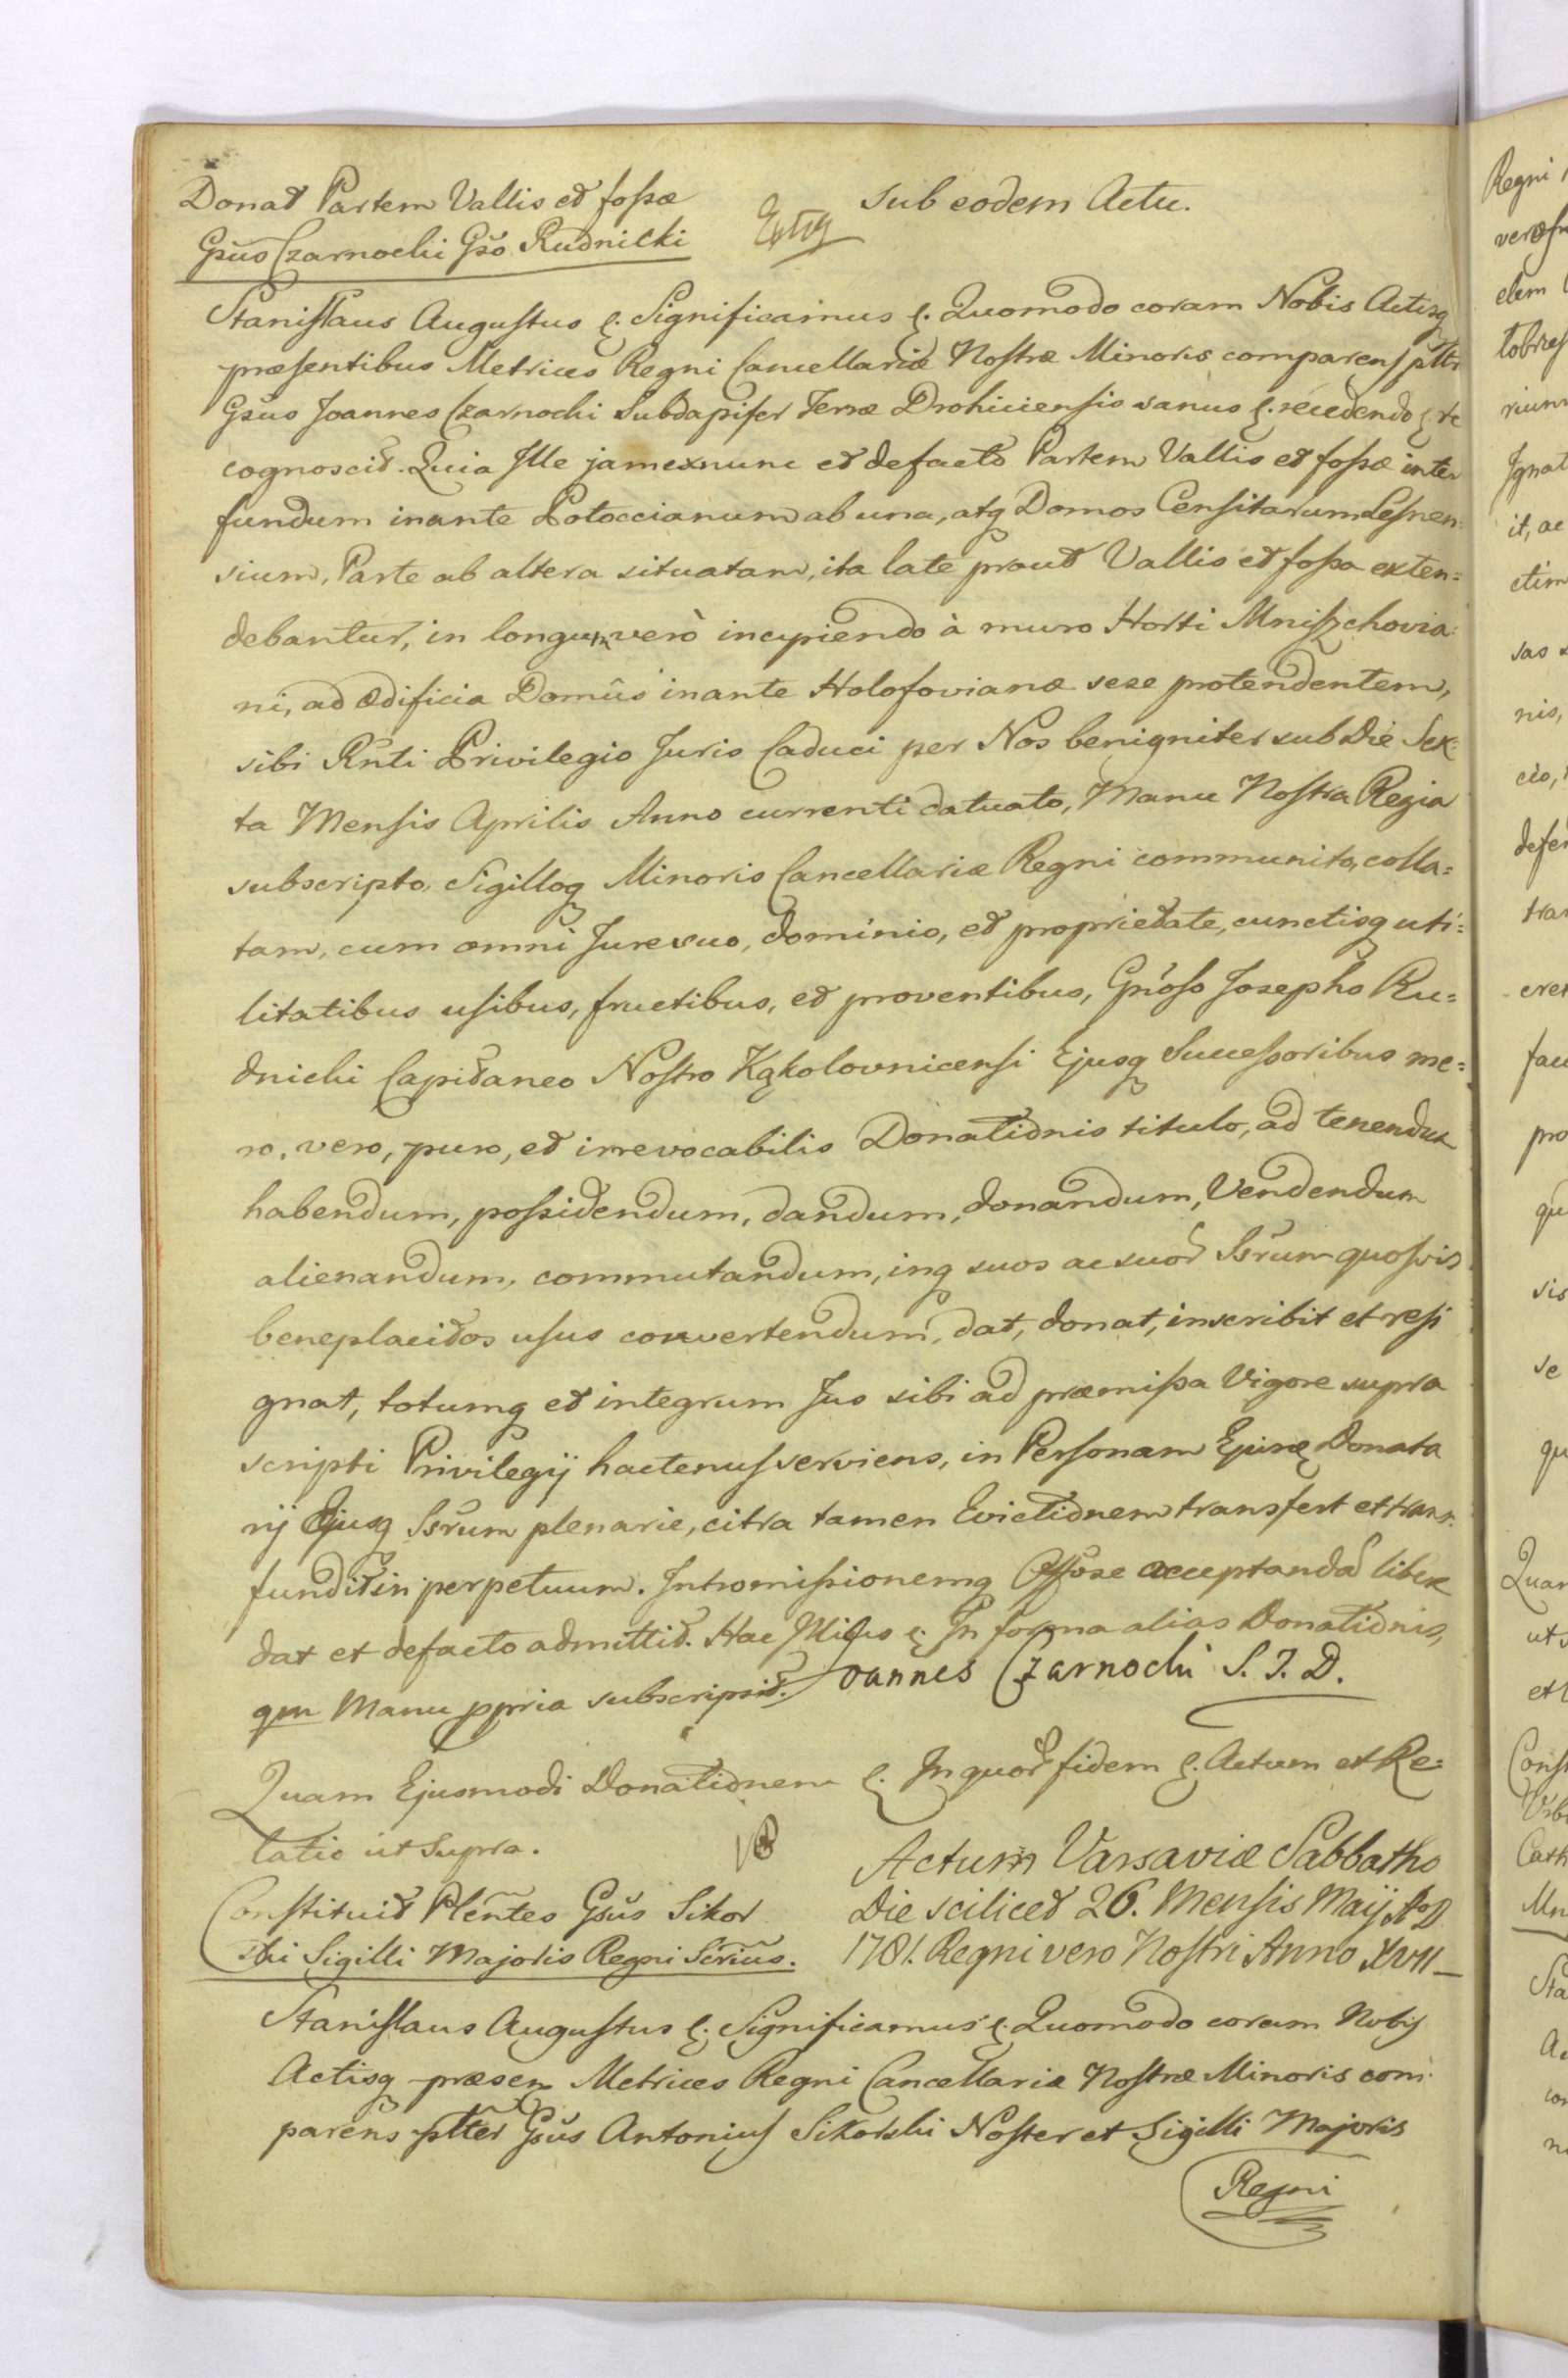 Donat Partem Vallis et fossæ
Gsus Czarnocki Gso Rudnicki
sub eodem Actu.
Stanislaus Augustus &. Significamus &. Quomodo coram Nobis Actisq
præsentibus Metrices Regni Cancellariæ Nostræ Minoris comparens pltr
Gsus Joannes Czarnocki Subdapifer Terræ Drohiciensis sanus &. recedendo &. re
cognoscit. Quia Ille jam exnunc et defacto Partem Vallis et fossæ inter
fundum inante Potoccianum ab una, atq Domos Censitarum Lesnen:
sium, Parte ab altera situatam, ita late prout Vallis et fossa exten=
debantur, in longum verò incipiendo à muro Horti Mniszchovia:
ni, ad Ædificia Domûs inante Holofovianæ sese protendentem,
sibi Rnti Privilegio Juris Caduci per Nos benigniter sub Die Sex:
ta Mensis Aprilis Anno currenti datuato, Manu Nostra Regia
subscripto, Sigilloq Minoris Cancellariæ Regni communito, colla=
tam, cum omni Jure suo, dominio, et proprietate, cunctisq uti=
litatibus usibus, fructibus, et proventibus, Gnoso Josepho Ru=
dnicki Capitaneo Nostro Kąkolovnicensi Ejusq Successoribus me=
ro, vero, puro, et irrevocabilis Donationis titulo, ad tenendum
habendum, possidendum, dandum, donandum, Vendendum
alienandum, commutandum, inq suos ac suor Ssrum quosvis
beneplacitos usus convertendum, dat, donat, inscribit et resi
gnat, totumq et integrum Jus sibi ad præmissa Vigore supra
scripti Privilegij hactenus serviens, in Personam Donata
rij Ejusq Ssrum plenarie, citra tamen Evictionem transfert et trans:
fundit in perpetuum. Intromissionemq acceptandã libere
dat et defacto admittit. Hac &. In forma alias Donationis,
qm Manu ppria subscripsit. Joannes Czarnocki S. Z. D.
Quam Ejusmodi Donationem &. In quor fidem &. Actum et Re:
latio ut Supra.
Actum Varsaviæ Sabbatho
Die scilicet 26. Mensis Maij AoD
1781. Regni vero Nostri Anno XVII
Constituit Plentes Gsus Sikor
ski Sigilli Majoris Regni Scrius.
Stanislaus Augustus &. Significamus &. Quomodo coram Nobis
Actisq præsen Metrices Regni Cancellariæ Nostræ Minoris com:
parens pltter Gsus Antonius Sikorski Noster et Sigilli Majoris
Regni